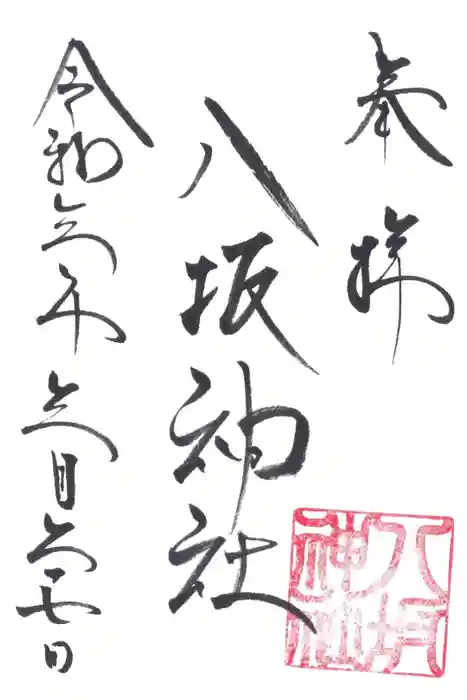 奉拝
八坂神社
令和六年六月七日
八坂
神社